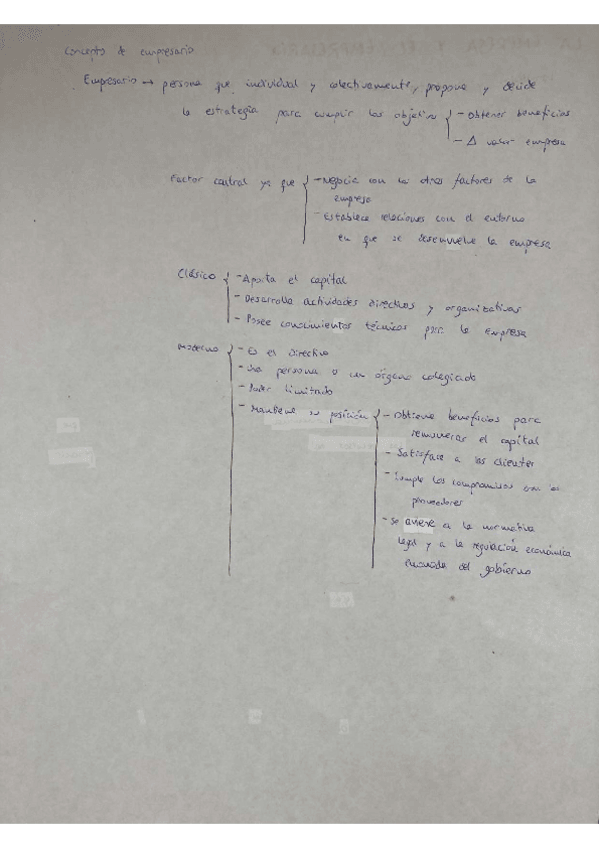 Concepto de empresario
Empresario → persona que individual y colectivamente, propone y decide
la estrategia para cumplir los objetivos { - Obtener beneficios
- Δ valor empresa
Factor central ya que { - Negocia con los otros factores de la
empresa
- Establece relaciones con el entorno
en que se desenvuelve la empresa
Clásico { - Aporta el capital
- Desarrolla actividades directivas y organizativas
- Posee conocimientos técnicos para la empresa
Moderno { - Es el Directivo
- Una persona o un órgano colegiado
- Poder limitado
- Mantiene su posición { - Obtiene beneficios para
remunerar el capital
- Satisface a los clientes
- Cumple los compromisos con los
proveedores
- Se aviene a la normativa
legal y a la regulación económica
emanada del gobierno